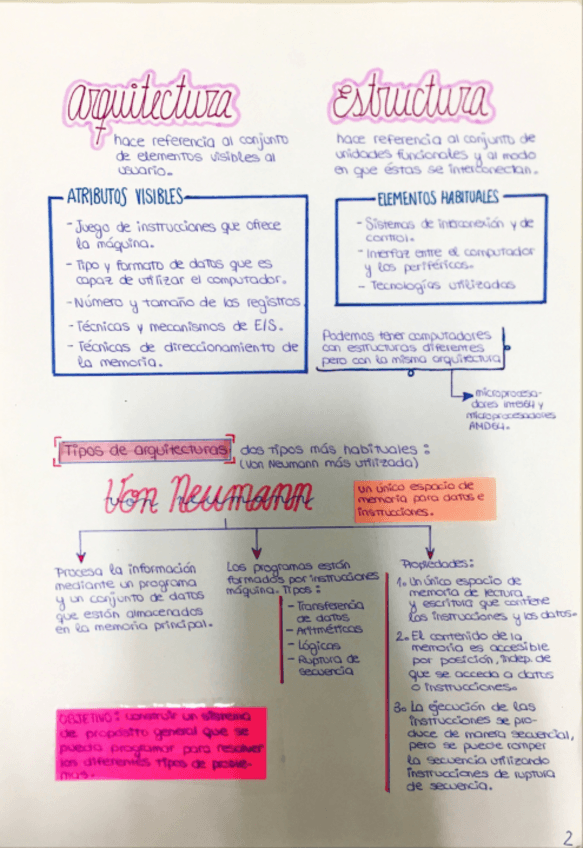 arquitectura
hace referencia al conjunto
de elementos visibles al
usuario.
ATRIBUTOS VISIBLES
- Juego de instrucciones que ofrece
la máquina.
- Tipo y formato de datos que es
capaz de utilizar el computador.
- Número y tamaño de los registros
- Técnicas y mecanismos de E/S.
- Técnicas de direccionamiento de
la memoria.
Estructura
hace referencia al conjunto de
unidades funcionales y al modo
en que éstas se interconectan.
ELEMENTOS HABITUALES
- Sistemas de interconexión y de
control.
- Interfaz entre el computador
y los periféricos.
- Tecnologías utilizadas
Podemos tener computadores
con estructuras diferentes
pero con la misma arquitectura
microprocesa-
dores intel64 y
microprocesadores
AMD64.
Tipos de arquitecturas dos tipos más habituales:
(Von Neumann más utilizada)
Von Neumann
un único espacio de
memoria para datos e
instrucciones.
Procesa la información
mediante un programa
y un conjunto de datos
que están almacenados
en la memoria principal.
Los programas están
formados por instrucciones
máquina. Tipos:
- Transferencia
de datos
- Aritméticas
- Lógicas
- Ruptura de
secuencia
Propiedades:
1. Un único espacio de
memoria de lectura
y escritura que contiene
las instrucciones y los datos.
2. El contenido de la
memoria es accesible
por posición, indep. de
que se acceda a datos
o instrucciones.
3. La ejecución de las
instrucciones se pro-
duce de manera secuencial,
pero se puede romper
la secuencia utilizando
instrucciones de ruptura
de secuencia.
OBJETIVO: construir un sistema
de propósito general que se
pueda programar para resolver
los diferentes tipos de proble-
mas.
2